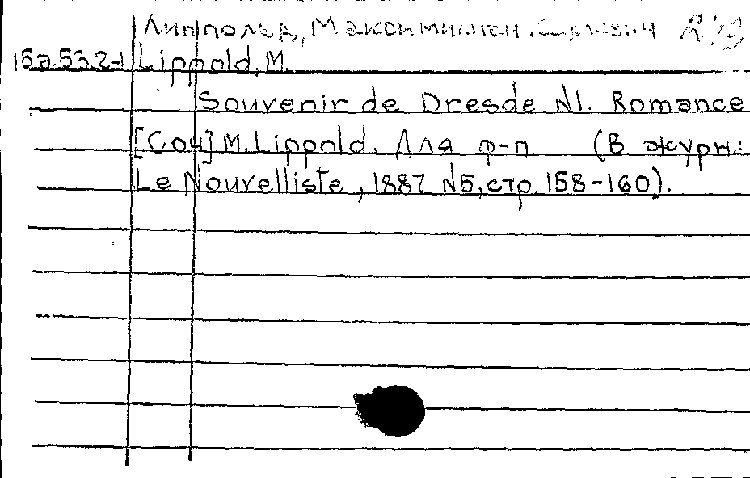 Липпольд, Максимилиан
Lippold, M.
Souvenir de Dresde №1. Romance
[Соч] M. Lippold. Для ф-п (В журн.:
Le Nouvelliste, 1887 №5, стр. 158-160).